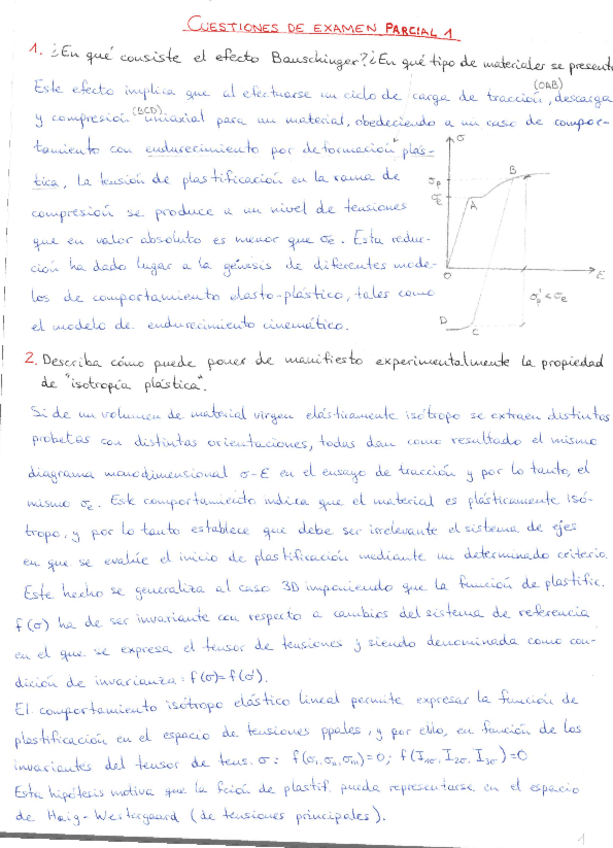 CUESTIONES DE EXAMEN PARCIAL 1
1. ¿En qué consiste el efecto Bauschinger? ¿En qué tipo de materiales se present
Este efecto implica que al efectuarse un ciclo de carga de tracción (OAB), descarga
y compresión (BCD) uniaxial para un material, obedeciendo a un caso de compor-
tamiento con endurecimiento por deformación plás-
tica, la tensión de plastificación en la rama de
compresión se produce a un nivel de tensiones
que en valor absoluto es menor que σe. Esta reduc-
ción ha dado lugar a la génesis de diferentes mode-
los de comportamiento elasto-plástico, tales como
el modelo de endurecimiento cinemático.
σ
σp
σE
A
B
O
ε
σp' < σe
D
C
2. Describa cómo puede poner de manifiesto experimentalmente la propiedad
de "isotropía plástica".
Si de un volumen de material virgen elásticamente isótropo se extraen distintas
probetas con distintas orientaciones, todas dan como resultado el mismo
diagrama monodimensional σ-ε en el ensayo de tracción y por lo tanto, el
mismo σe. Este comportamiento indica que el material es plásticamente isó-
tropo, y por lo tanto establece que debe ser irrelevante el sistema de ejes
en que se evalúe el inicio de plastificación mediante un determinado criterio.
Este hecho se generaliza al caso 3D imponiendo que la función de plastific.
f(σ) ha de ser invariante con respecto a cambios del sistema de referencia
en el que se expresa el tensor de tensiones y siendo denominada como con-
dición de invarianza: f(σ)=f(σ').
El comportamiento isótropo elástico lineal permite expresar la función de
plastificación en el espacio de tensiones ppales, y por ello, en función de los
invariantes del tensor de tens. σ: f(σI, σII, σIII)=0; f(I1σ, I2σ, I3σ)=0
Esta hipótesis motiva que la fción de plastif. pueda representarse en el espacio
de Haig-Westergaard (de tensiones principales).
1